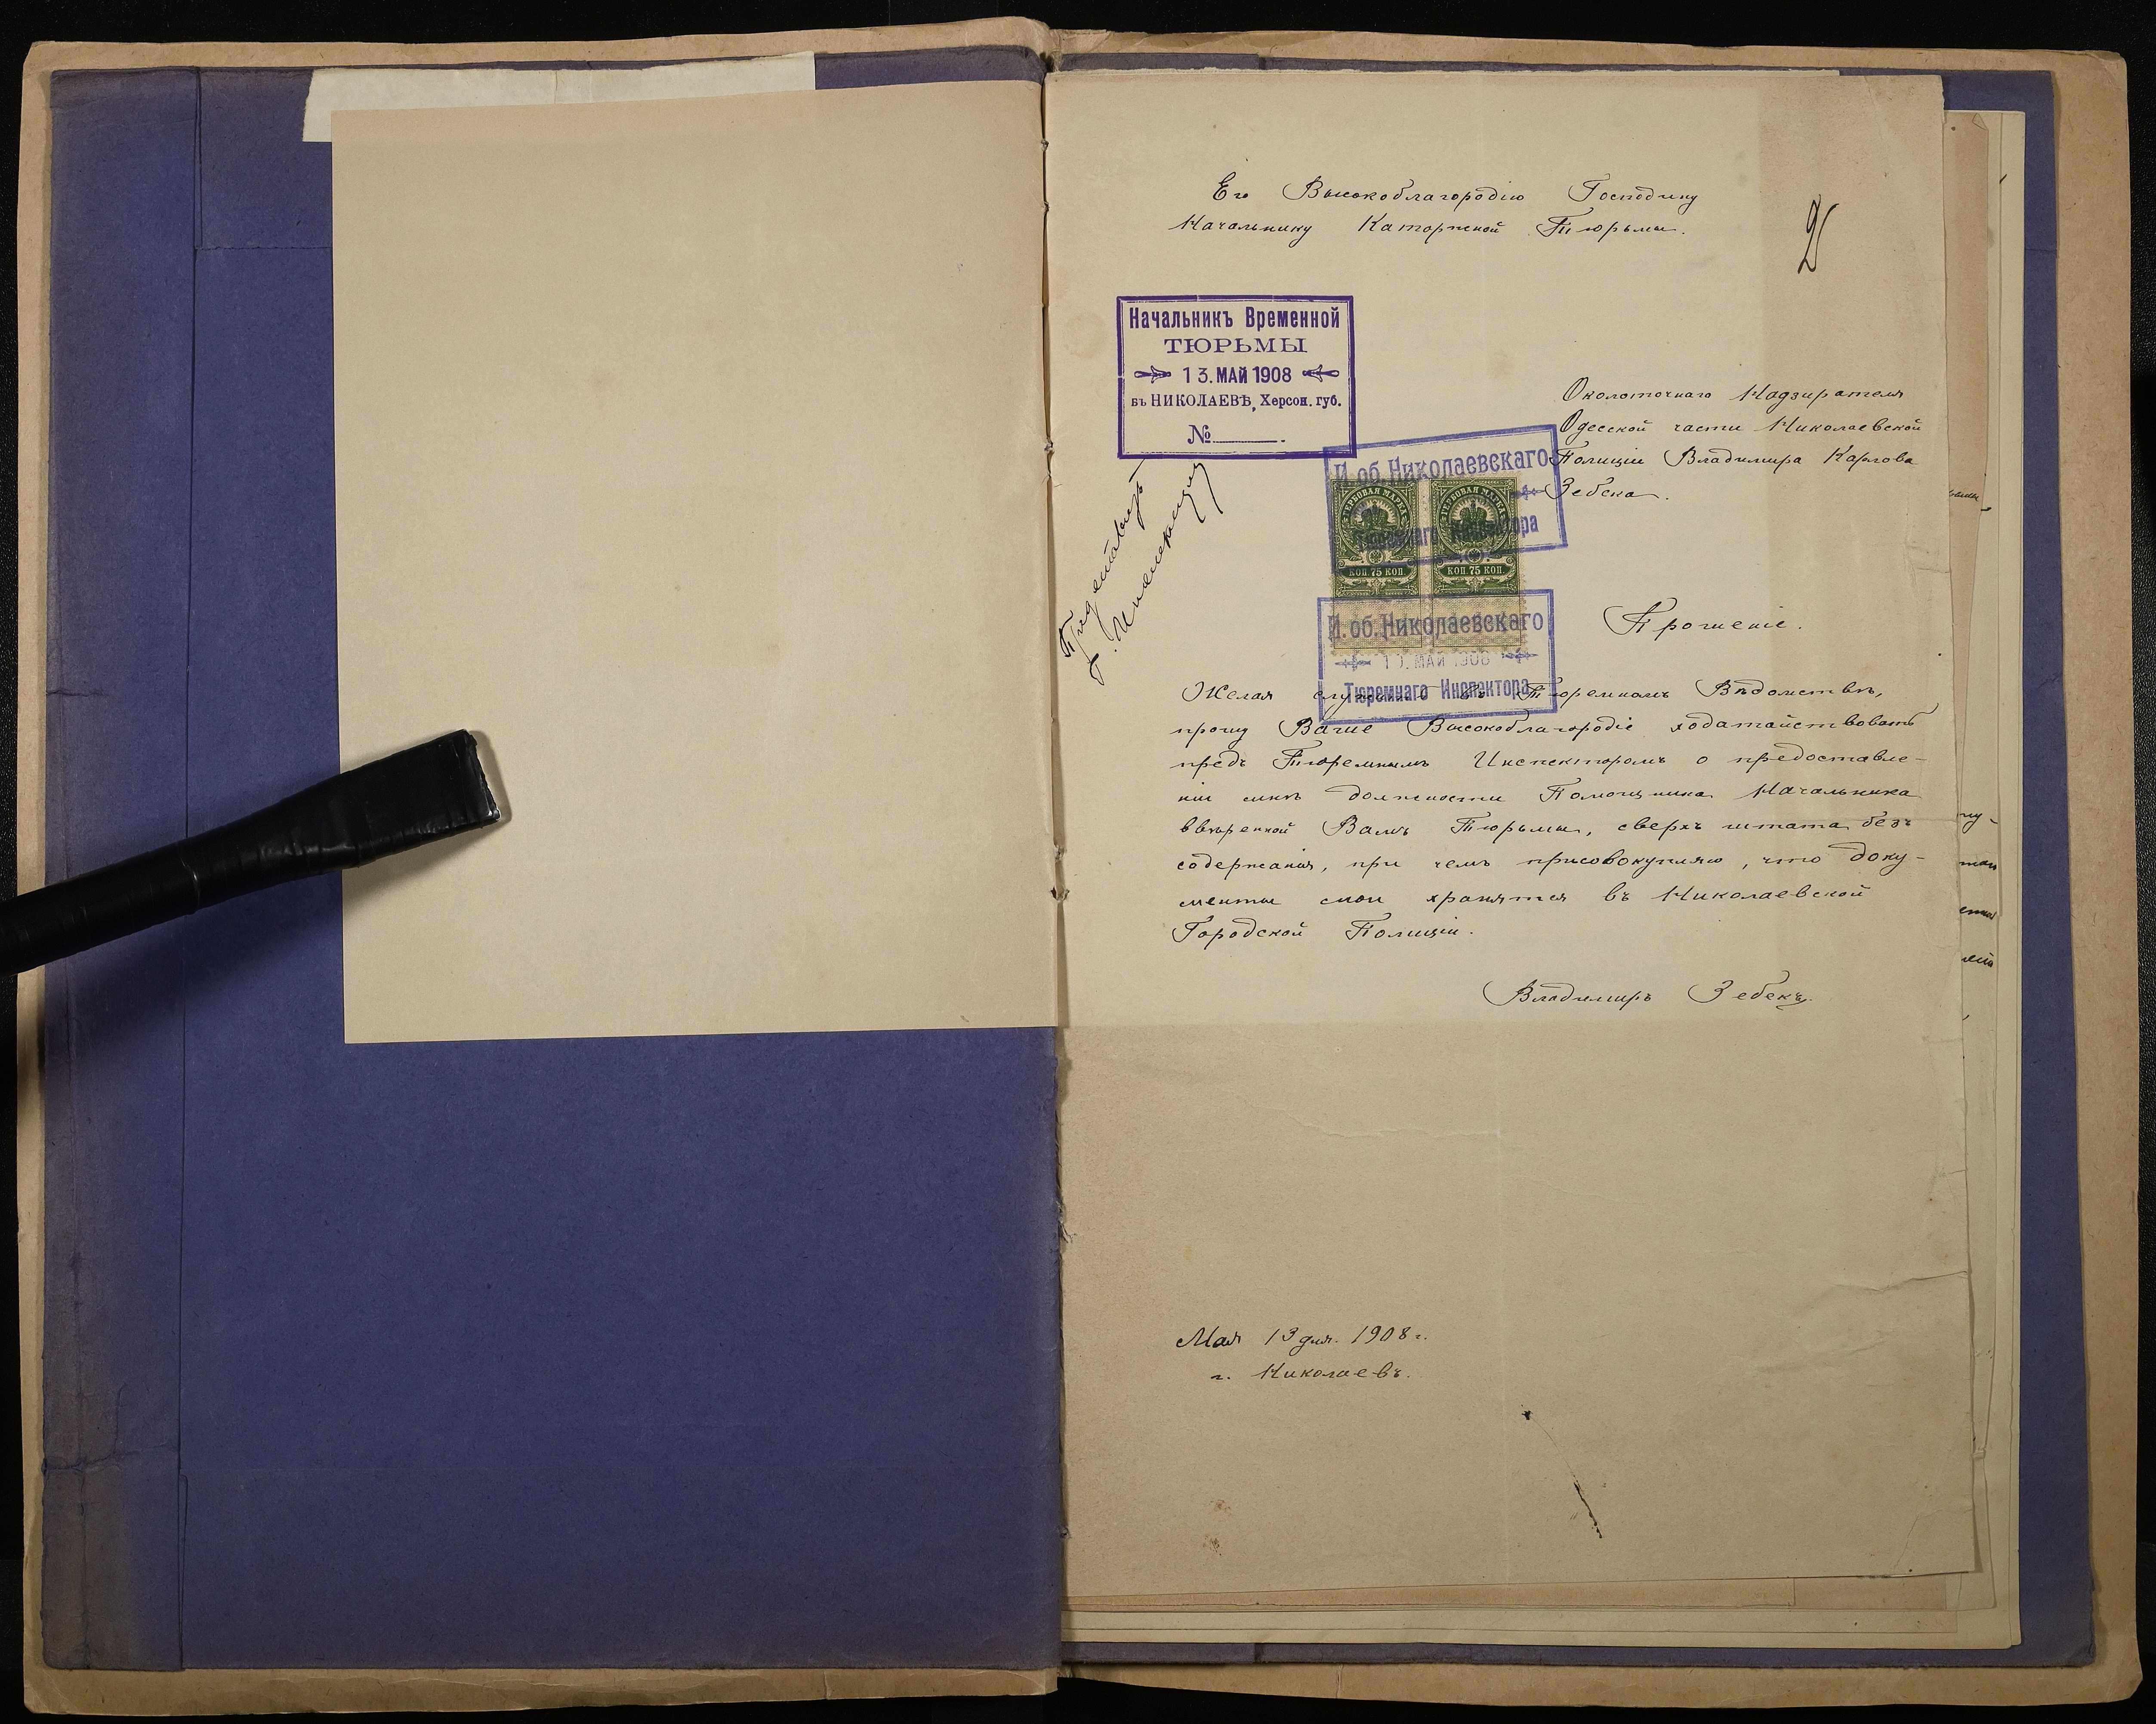 Его Высокоблагородію Господину
Начальнику Каторжной Тюрьмы.
2
Начальникъ Временной
ТЮРЬМЫ
13. МАЙ 1908
въ НИКОЛАЕВѢ, Херсон. губ.
№
Околоточнаго Надзирателя
Одесской части Николаевской
Полиціи Владимира Карлова
Зебека.
И. об. Николаевскаго
Тюремнаго Инспектора
ГЕРБОВАЯ МАРКА
ГЕРБОВАЯ МАРКА
КОП. 75 КОП.
КОП. 75 КОП.
И. об. Николаевскаго
МАЙ 1908
Тюремнаго Инспектора
Прошеніе.
Желая служить въ Тюремномъ Вѣдомствѣ,
прошу Ваше Высокоблагородіе ходатайствовать
предъ Тюремнымъ Инспекторомъ о предоставле-
ніи мнѣ должности Помощника Начальника
ввѣренной Вамъ Тюрьмы, сверхъ штата безъ
содержанія, при чемъ присовокупляю, что доку-
менты мои хранятся въ Николаевской
Городской Полиціи.
Владимиръ Зебекъ.
Мая 13 дня. 1908 г.
г. Николаевъ.